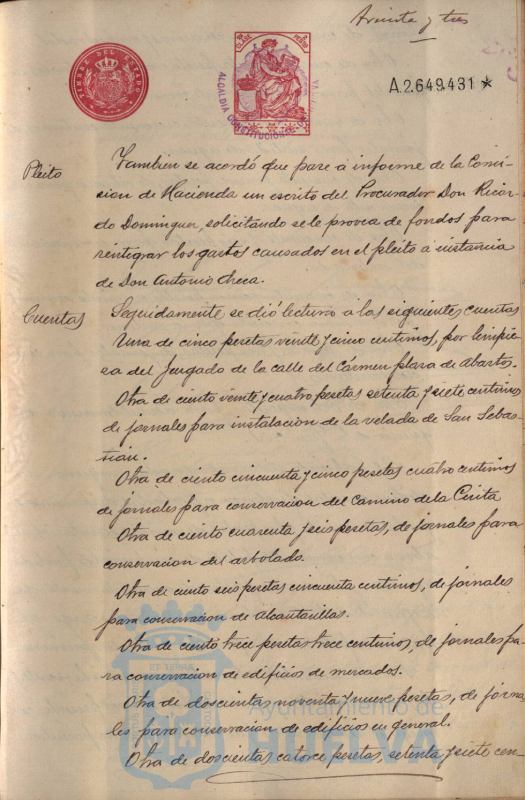 Treinta y tres
TIMBRE DEL ESTADO
CLASE
PESETA
ALCALDIA CONSTITUCIONAL
A.2.649.431 *
Pleito
Tambien se acordó que pase á informe de la Comi-
sion de Hacienda un escrito del Procurador Don Ricar-
do Dominguez, solicitando se le provea de fondos para
reintigrar los gastos causados en el pleito á instancia
de Don Antonio Checa.
Cuentas
Seguidamente se dió lectura á las siguientes cuentas
Una de cinco pesetas veinte y cinco centimos, por limpie-
za del Juzgado de la calle del Cármen plaza de abastos.
Otra de ciento veinte y cuatro pesetas setenta y siete centimos
de jornales para instalacion de la velada de San Sebas-
tián.
Otra de ciento cincuenta y cinco pesetas cuatro centimos
de jornales para conservacion del Camino de la Cinta
Otra de ciento cuarenta y seis pesetas, de jornales para
conservacion del arbolado.
Otra de ciento seis pesetas cincuenta centimos, de jornales
para conservacion de alcantarillas.
Otra de ciento trece pesetas trece centimos, de jornales pa-
ra conservacion de edificios de mercados.
Otra de doscientas noventa y nueve pesetas, de jorna-
les para conservacion de edificios en general.
Otra de doscientas catorce pesetas, setenta y siete cen-
Ayuntamiento de
HUELVA